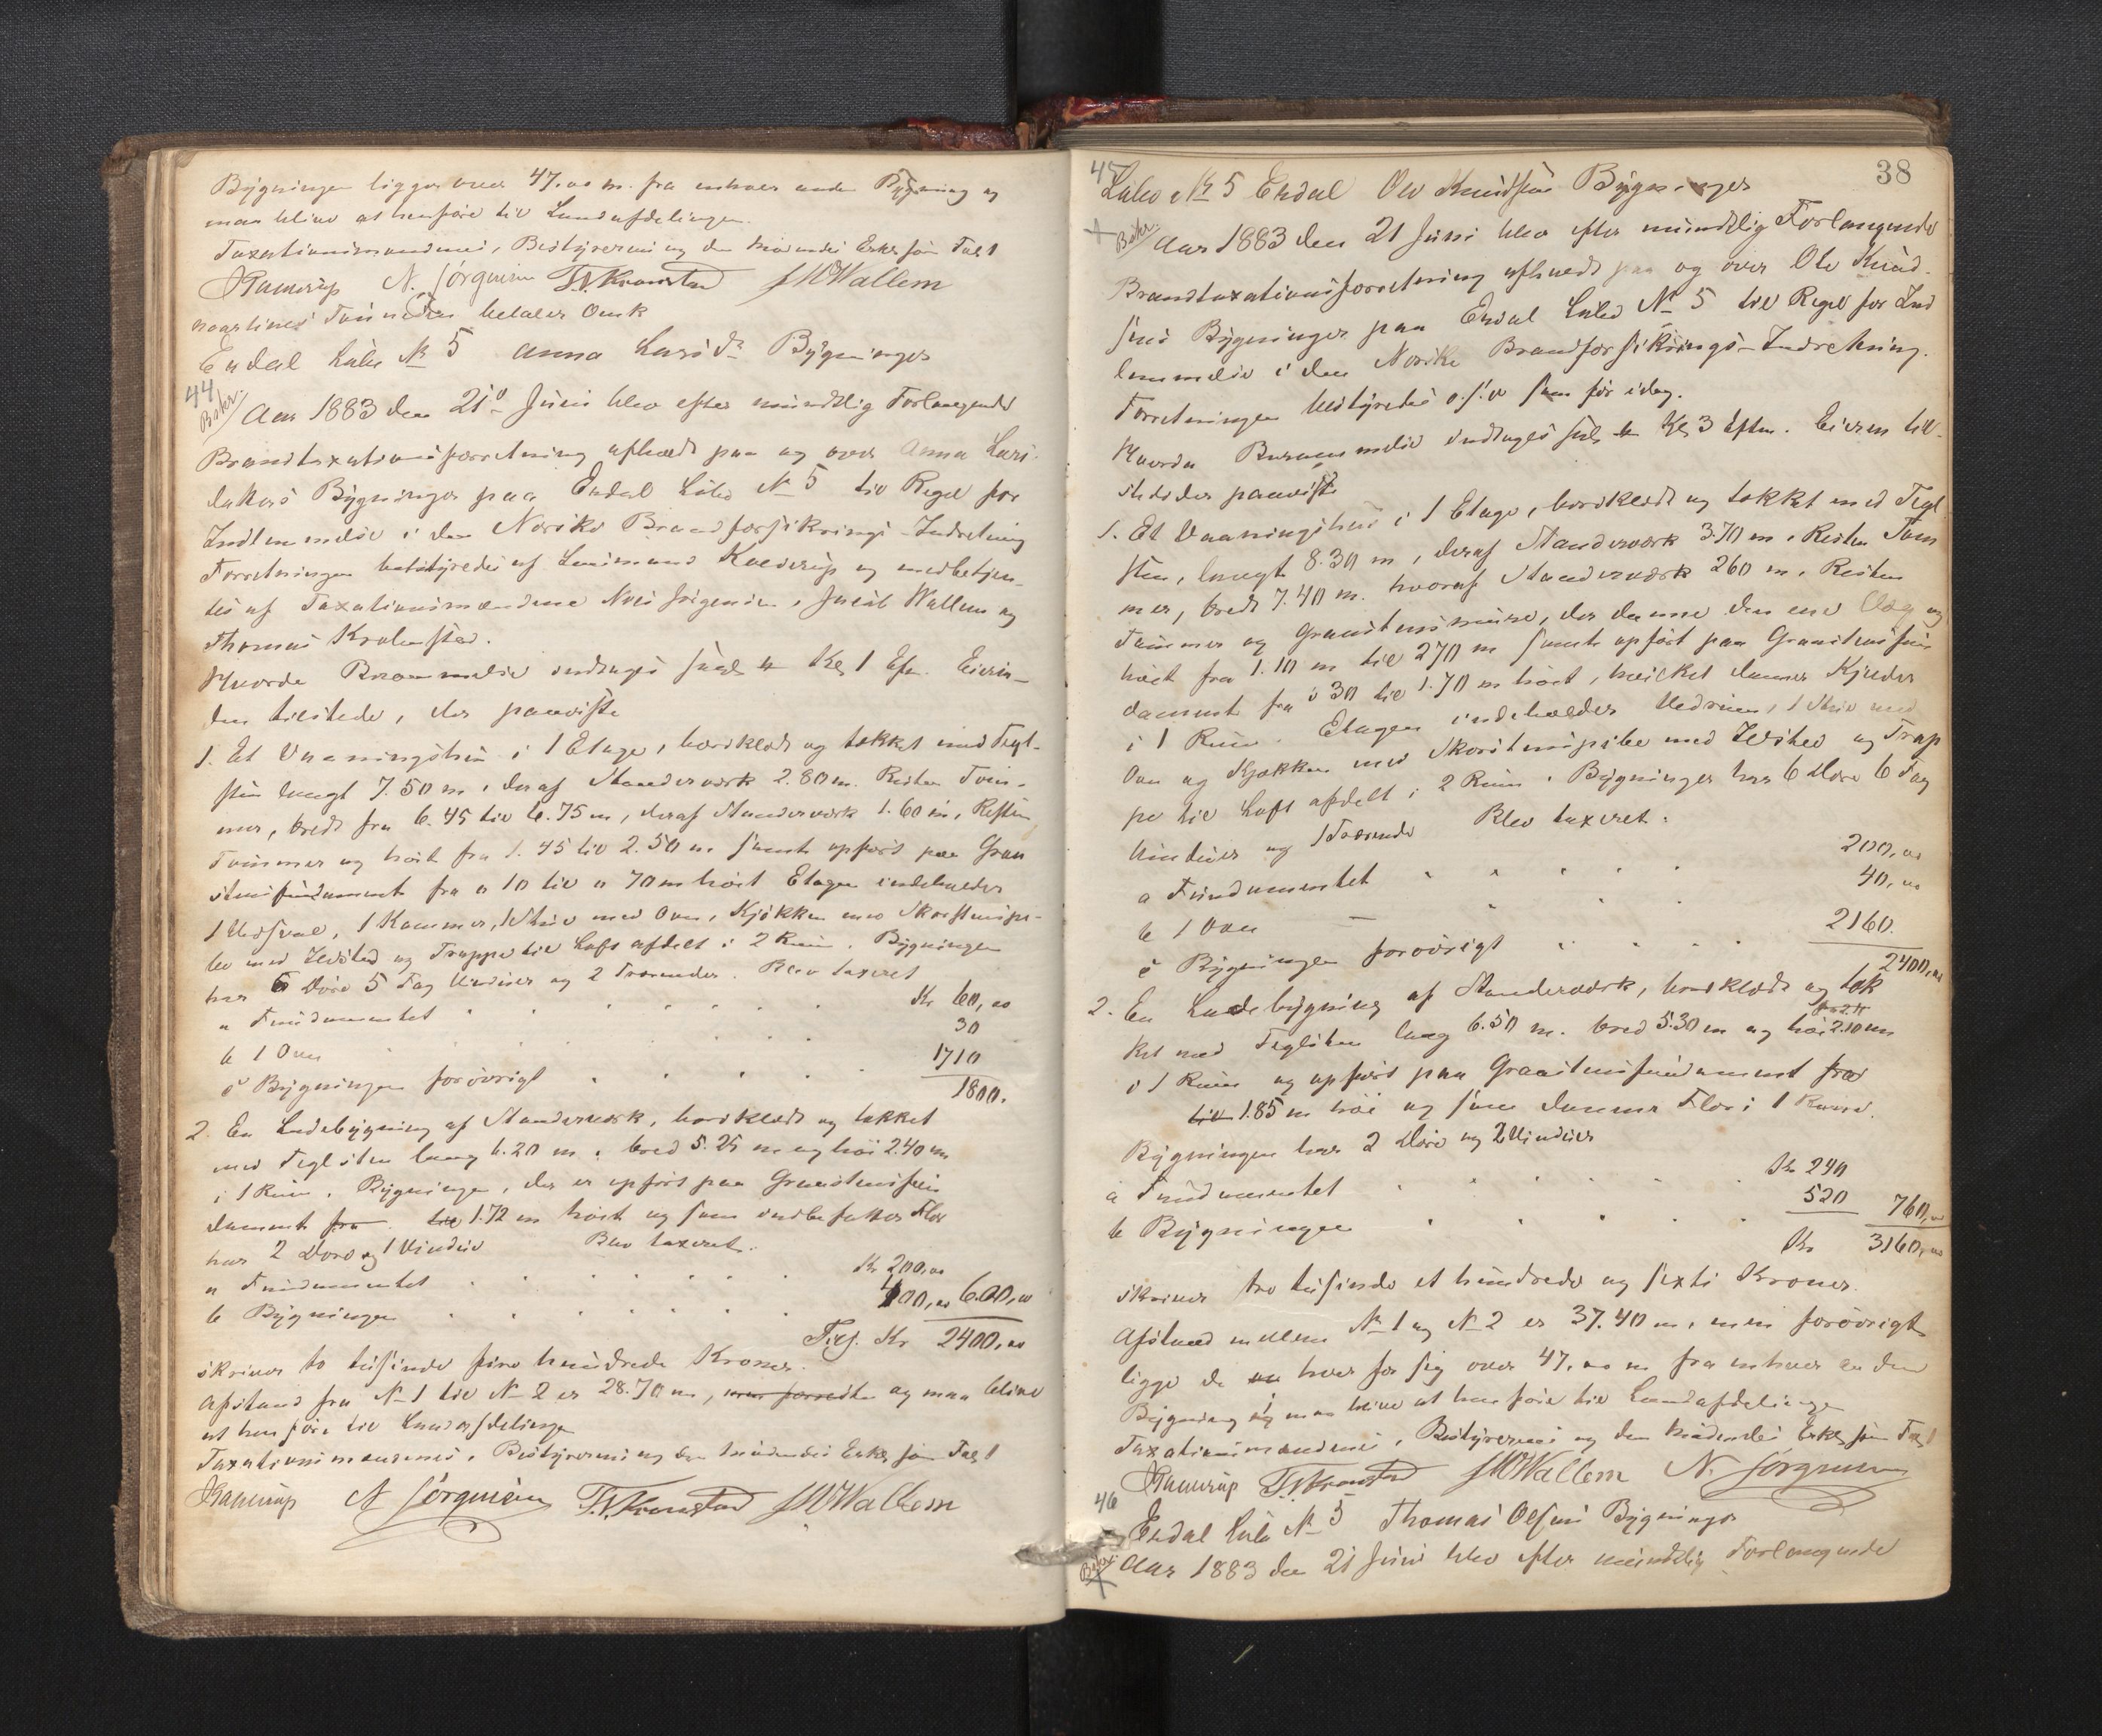 Bygningen ligger over 47,00 m. fra enhver anden Bygning og
maa blive at henføre til Landafdelingen.
Taxationsmændenes, Bestyrerens og den
N. Jørgensen T. Kronstad J W Wallem
betaler
Endal Løbe No 5 Anna Larsdr Bygninger
44
Aar 1883 den 21de Juni blev efter mundtlig Forlangende
Brandtaxationsforretning afholdt paa og over Anna Lars-
datters Bygninger paa Endal Løbe No 5 til Regel for
Indlemmelse i den Norske Brandforsikrings-Indretning
Forretningen bestyredes af Lensmand og medbetjen-
tes af Taxationsmændene Nils Jørgensen, Jacob Wallem og
Thomas
Hvorda indtages Kl 1 Efm. Eierin-
den tilstede, der paaviste
1. Et Vaaningshus i 1 Etage, bordklædt og tækket med Tegl-
sten langt 7.50 m, deraf Standerværk 2.80 m. Resten Tøm-
mer, bredt fra 6.45 til 6.75 m, deraf Standerværk 1.60 m, Resten
Tømmer og høit fra 1.45 til 2.50 m samt opført paa Graa
stensfundament fra 0 10 til 0 70 m høit Etagen indeholder
1 Kammer, 1 Stue med Ovn, Kjøkken med Skorstenspi-
be med Ildsted og Trappe til Loft afdelt i 2 Rum. Bygningen
har 6 Døre 5 Fag Vinduer og 2 Trærender. Blev taxeret
a Fundamentet Kr 60,00
b 1 Ovn 30
c Bygningen forøvrigt 1710
1800.
2 En Ladebygning af Standerværk, bordklædt og tækket
med Teglsten lang 6.20 m. bred 5.25 m og høi 2.40 m
i 1 Rum. Bygningen, der er opført paa Graastensfun
dament fra til 1.72 m høit og som indbefatter Flor
har 2 Døre og 1 Vindue Blev taxeret.
a Fundamentet Kr 200,00
b Bygningen 400,00 600,00
Kr 2400,00
skriver to tusinde fire hundrede Kroner.
Afstand fra No 1 til No 2 er 28.70 m, og maa blive
at henføre til Landafdelingen
Taxationsmændenes, Bestyrerens og den
N Jørgensen T. Kronstad J W Wallem
38
45
Løbe No 5 Endal Ole Knudsens Bygninger
Aar 1883 den 21 Juni blev efter mundtlig Forlangende
Brandtaxationsforretning afholdt paa og over Ole Knud-
sens Bygninger paa Endal Løbe No 5 til Regel for Ind
lemmelse i den Norske Brandforsikrings-Indretning.
Forretningen bestyredes o.s.v som før idag.
Hvorda indtages Kl 3 Eftm. Eieren til-
stede der paaviste
1. Et Vaaningshus i 1 Etage, bordklædt og tækket med Tegl
sten, langt 8.30 m, deraf Standerværk 3.70 m, Resten Tøm
mer, bredt 7.40 m. hvoraf Standerværk 260 m, Resten
Tømmer og Graastensmure, der danne den ene Væg og
høit fra 1.10 m til 270 m samt opført paa Graastensfun
dament fra 0 30 til 1.70 m høit, hvilket danner Kjelder
i 1 Rum. Etagen indeholder 1 Stue med
Ovn og Kjøkken med Skorstenspibe med Ildsted og Trap
pe til Loft afdelt i 2 Rum. Bygningen har 6 Døre 6 Fag
Vinduer og 1 Trærende Blev taxeret.
a Fundamentet 200,00
b 1 Ovn 40,00
c Bygningen forøvrigt 2160.
2400,00
2. En Ladebygning af Standerværk, bordklædt og tæk
ket med Teglsten lang 6.50 m. bred 5.30 m og høi 2.10 m
i 1 Rum og opført paa Graastensfundament fra
til 1.85 m høi og som danner Flor i 1 Rum.
Bygningen har 2 Døre og 2 Vinduer
a Fundamentet Kr 240
b Bygningen 520 760,00
Kr 3160,00
skriver tre tusinde et hundrede og sexti Kroner.
Afstand mellem No 1 og No 2 er 37.40 m, men forøvrigt
ligge de hver for sig over 47,00 m fra enhver anden
Bygning og maa blive at henføre til Landafdelingen
Taxationsmændenes, Bestyrerens og den
T. Kronstad J W Wallem N. Jørgensen
46
Endal Løbe No 5 Thomas Olsens Bygninger
Aar 1883 den 21 Juni blev efter mundtlig Forlangende